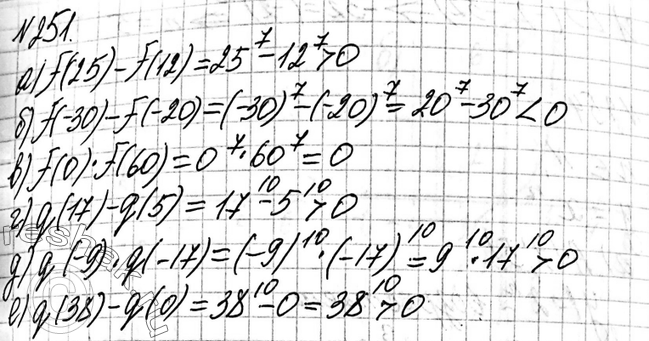 N251.
а) f(25)-f(12)=25⁷-12⁷>0
б) f(-30)-f(-20)=(-30)⁷-(-20)⁷=20⁷-30⁷<0
в) f(0)·f(60)=0⁷·60⁷=0
г) g(17)-g(5)=17¹⁰-5¹⁰>0
д) g(-9)·g(-17)=(-9)¹⁰·(-17)¹⁰=9¹⁰·17¹⁰>0
е) g(38)-g(0)=38¹⁰-0=38¹⁰>0